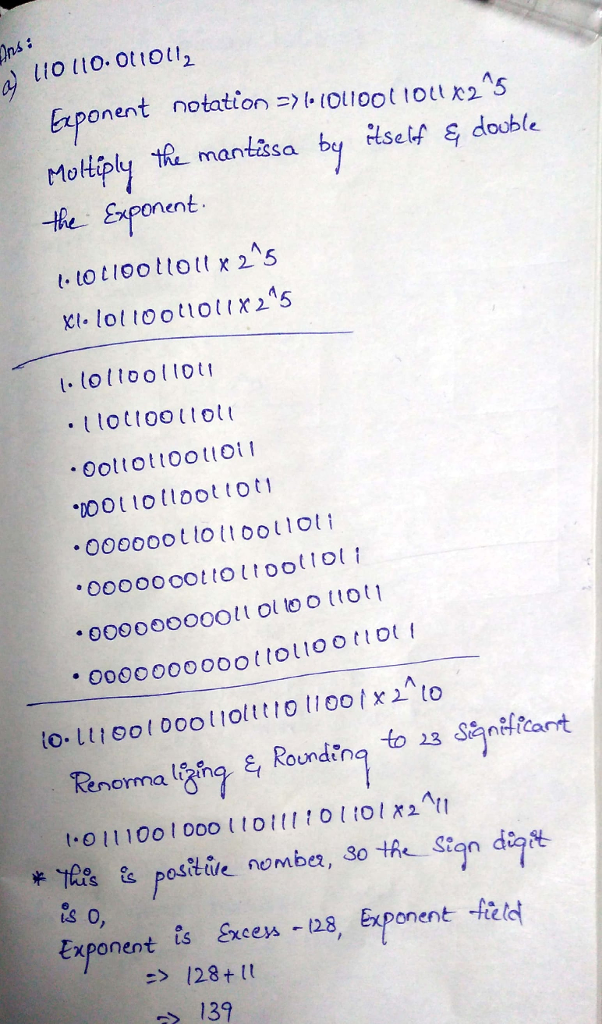 Ans:
a) 110110.011011₂
Exponent notation => 1.10110011011 x 2^5
Moltiply the mantissa by itself & double
the Exponent.
1.10110011011 x 2^5
x1.10110011011 x 2^5
1.10110011011
.110110011011
.00110110011011
.000110110011011
.000000110110011011
.0000000110110011011
.000000000110110011011
.0000000000110110011011
10.1110010001101111011001 x 2^10
Renormalizing & Rounding to 23 Significant
1.0111001000110111101101 x 2^11
* This is positive nomber, so the Sign digit
is 0,
Exponent is Excess - 128, Exponent field
=> 128 + 11
=> 139